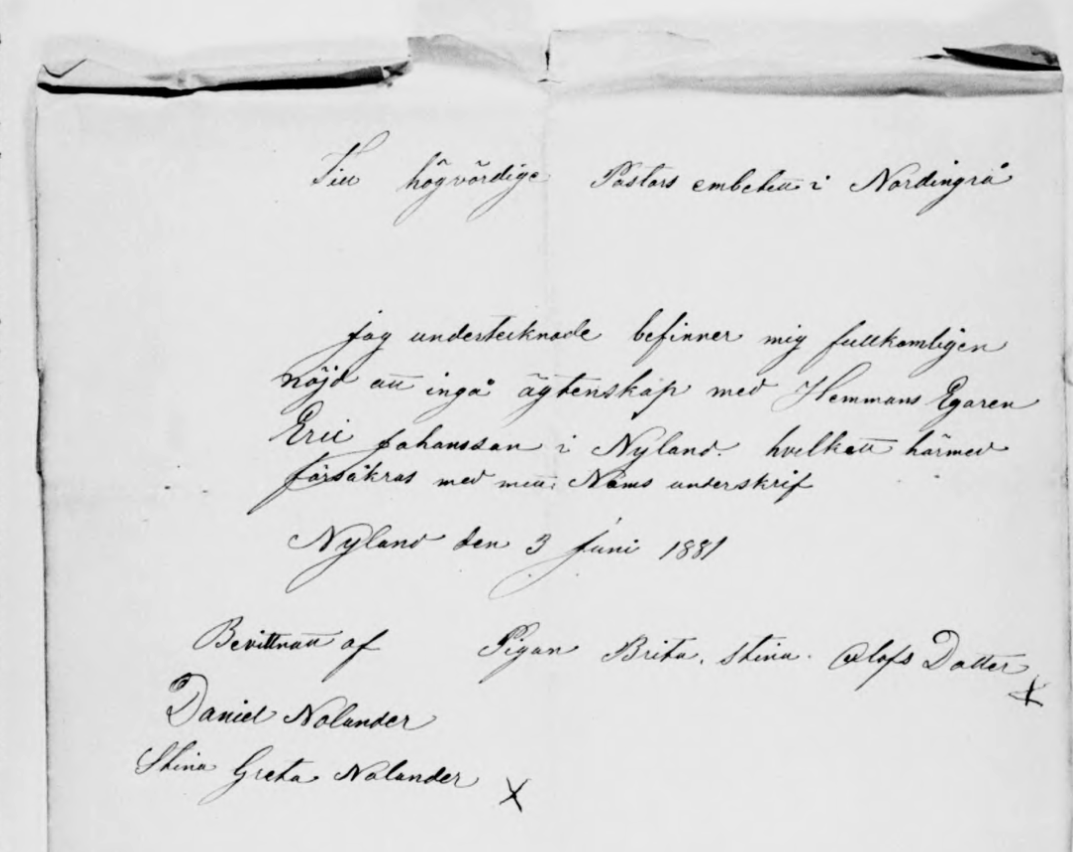 Till högvördige Pastors embetett i Nordingrå
jag undertecknade befinner mig fullkomligen
nöjd att ingå ägtenskap med Hemmans Egaren
Eric Johansson i Nyland. hvilkett härmed
försäkras med mitt Nams underskrif
Nyland den 3 Juni 1881
Bevittnatt af Pigan Brita. Stina. Olofs Dotter X
Daniel Nolander
Stina Greta Nolander X